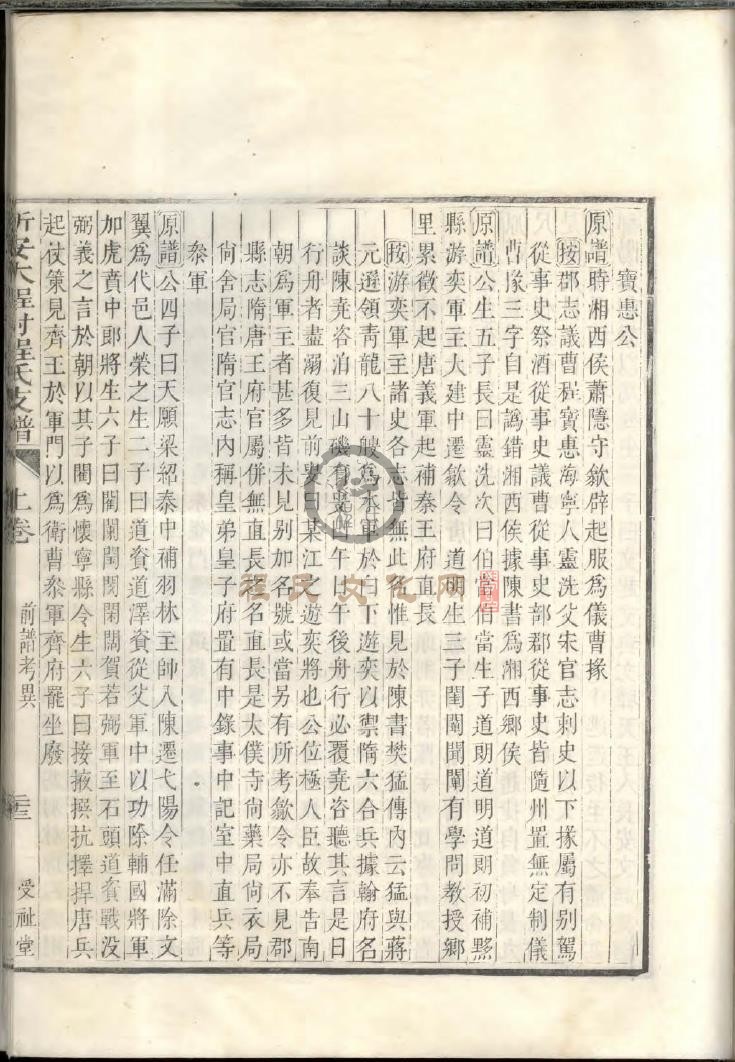 寶惠公
原譜時湘西侯蕭隱守歙辟起服爲儀曹掾
按郡志議曹程寶惠海寧人靈洗父宋官志刺史以下掾屬有别駕
從事史祭酒從事史議曹從事史部郡從事史皆隨州置無定制儀
曹掾三字自是譌錯湘西侯據陳書爲湘西鄉侯
原譜公生五子長曰靈洗次曰伯當伯當生子道朗道明道朗初補黟
縣游奕軍主大建中遷歙令道明生三子閨闔聞闡有學問教授鄉
里累徵不起唐義軍起補秦王府直長
按游奕軍主諸史各志皆無此名惟見於陳書樊猛傳內云猛與蔣
元遜領青龍八十艘爲水軍於白下遊奕以禦隋六合兵據翰府名
談陳堯咨泊三山磯有叟曰午後舟行必覆堯咨聽其言是日
行舟者盡溺復見前叟曰某江之遊奕將也公位極人臣故奉告南
朝爲軍主者甚多皆未見别加名號或當另有所考歙令亦不見郡
縣志隋唐王府官屬併無直長者名直長是太僕寺尚藥局尚衣局
尚舍局官隋官志内稱皇弟皇子府置有中錄事中記室中直兵等
叅軍
原譜公四子曰天願梁紹泰中補羽林主帥入陳遷弋陽令任滿除文
翼爲代邑人榮之生二子曰道資道澤資從父軍中以功除輔國將軍
加虎賁中郎將生六子曰闈闌閏閔閑闊賀若弼軍至石頭道資戰没
弼義之言於朝以其子闈爲懷寧縣令生六子曰接掖撰抗擇捍唐兵
起仗策見齊王於軍門以爲衛曹叅軍齊府罷坐廢
新安大程村程氏支譜
上卷
前譜考異
二十三
受祉堂
程氏文化网